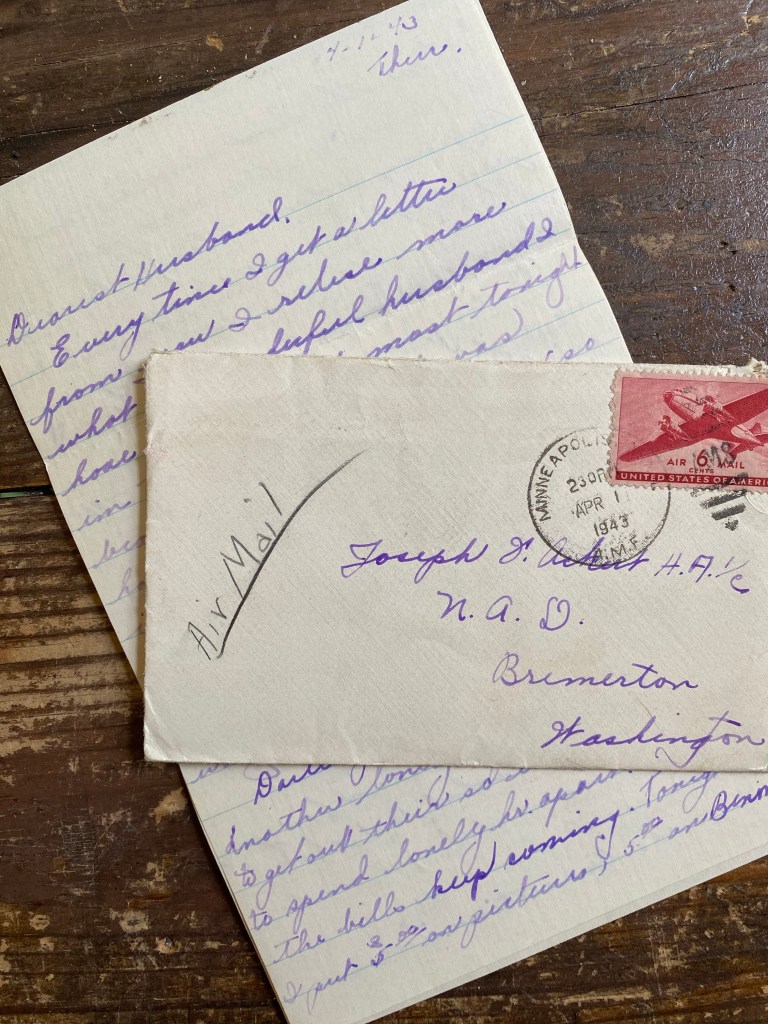 4-1-43
Thur.
Dearest Husband,
Every time I get a letter
from you I relise more
what derful husband I
most tonight
was
so
im
Air Mail
MINNEAPOLIS
230
APR 1
1943
AIR 6 MAIL
CENTS
UNITED STATES OF AMERI
Joseph H.A. 1/c
N. A. D.
Bremerton
Washington
Another lone
to get out their so
to spend lonely hr. apart.
the bills keep coming. Tonig
I put on pictures & 5.00 on